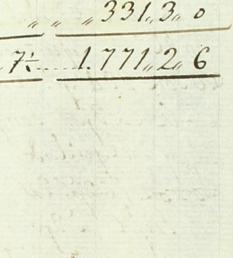 „ „ „ 331„3„0
7½ 1.771„2„6